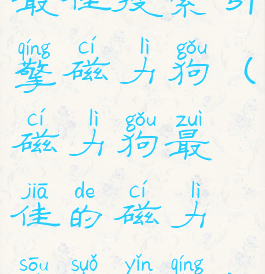 最佳搜索引
qíng cí lì gǒu
擎磁力狗（
cí lì gǒu zuì
磁力狗最
jiā de cí lì
佳的磁力
sōu suǒ yǐn qíng